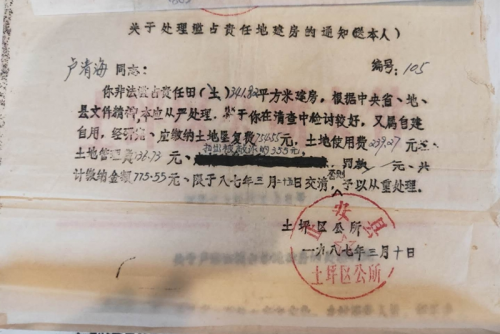 关于处理滥占责任地建房的通知(送本人)
卢清海 同志: 编号: 105
你非法滥占责任田(土)341.82平方米建房,根据中央省、地、
县文件精神,本应从严处理,鉴于你在清查中检讨较好,又属自建
自用,经研究、应缴纳土地垦复费 元,土地使用费239.27元、
土地管理费136.73元、 罚款 元、共
计缴纳金额775.55元、限于八七年三月十五日交清,否则予以从重处理。
安县
土坪区公所
一九八七年三月十日
土坪区公所